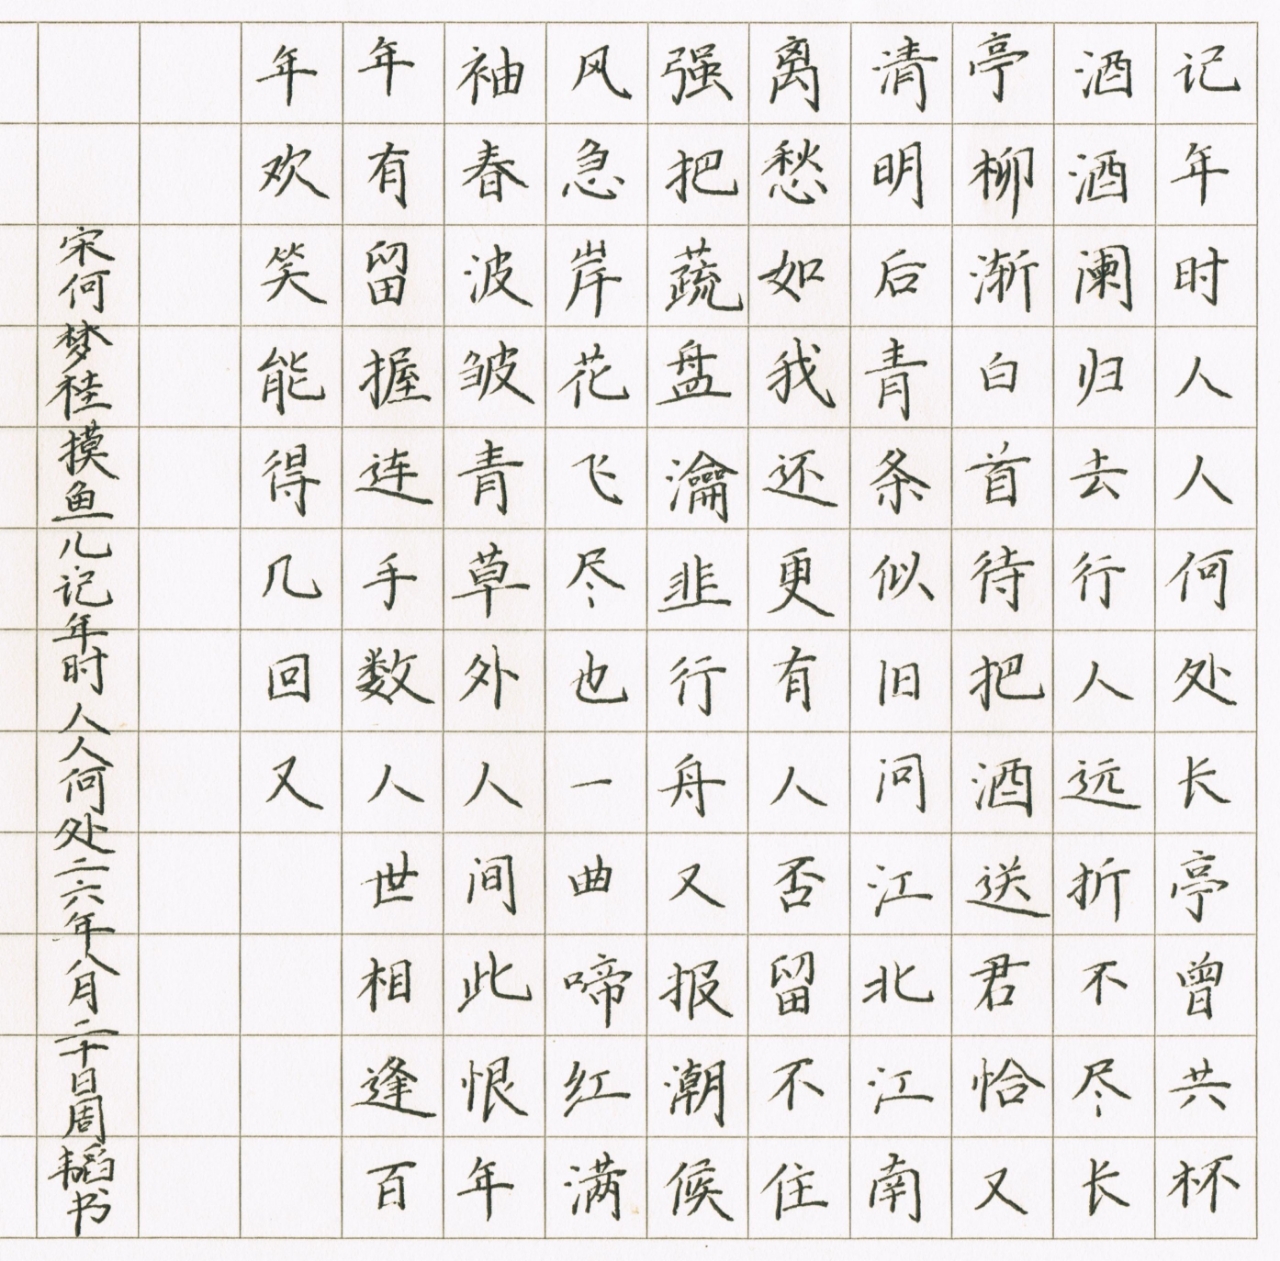 记年时人人何处长亭曾共杯
酒酒阑归去行人远折不尽长
亭柳渐白首待把酒送君恰又
清明后青条似旧问江北江南
离愁如我还更有人否留不住
强把蔬盘瀹韭行舟又报潮候
风急岸花飞尽也一曲啼红满
袖春波皱青草外人间此恨年
年有留握连手数人世相逢百
年欢笑能得几回又
宋何梦桂摸鱼儿记年时人人何处二六年八月二十日周韬书